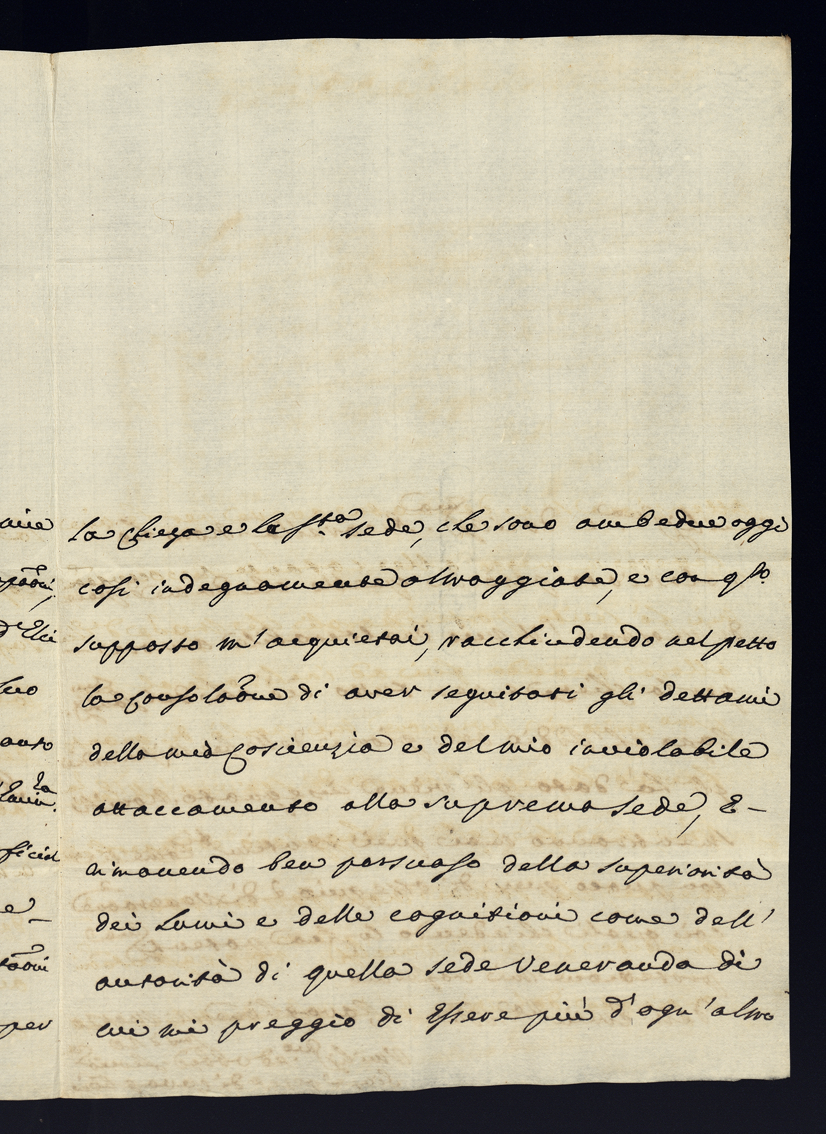 la Chieza e la S.ta Sede, che sono ambedue oggi
cosi indegnamente oltraggiate, e con q.to
supposto m'acquietai, racchiudendo nel petto
la consolaõne di aver seguitati gli dettami
della mia coscienzia e del mio inviolabile
attaccamento alla suprema sede, E-
rimanendo ben persuaso della superiorità
dei Lumi e delle cognitioni come dell'
autorità di quella sede Veneranda di
cui mi preggio di Essere più d'ogn'altro